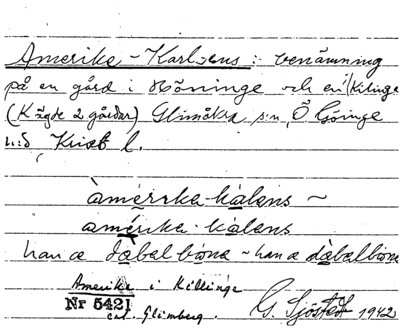 Amerika-Karlsens: benämning
på en gård i Höninge och en i Killinge
(K ägde 2 gårdar) Glimåkra s:n, Ö Göinge
h:d, Krist l.
àmérrka-kàlens ~
amérika-kàlens
han a dàbalböna ~ han a dàbalböna
Amerika i Killinge
Nr 5421
G. Sjöstedt 1942